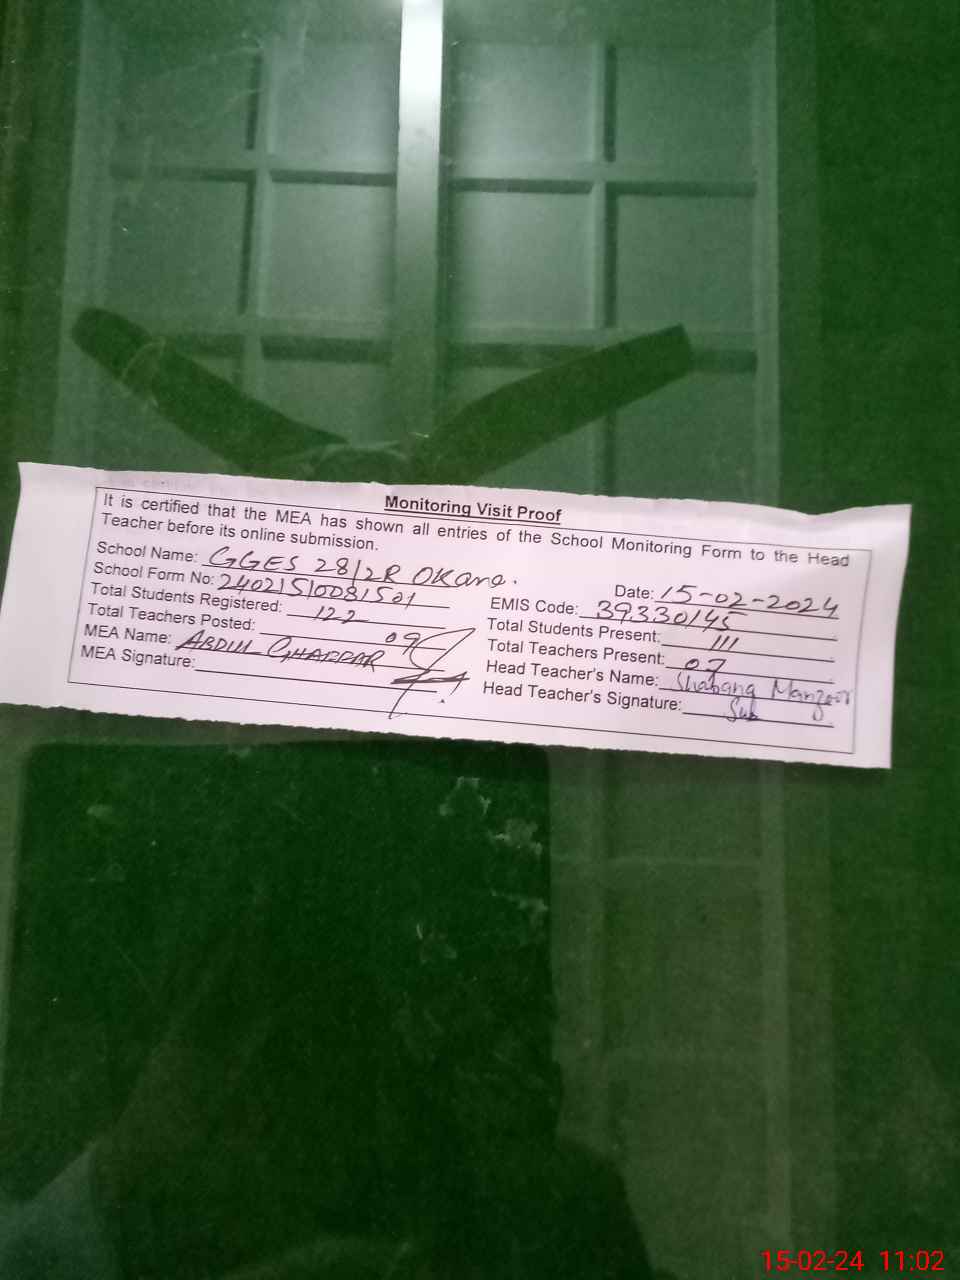 Monitoring Visit Proof
It is certified that the MEA has shown all entries of the School Monitoring Form to the Head
Teacher before its online submission.
School Name: GGES 28/2R Okara. Date: 15-02-2024
School Form No: 24021510081501 EMIS Code: 39330145
Total Students Registered: 122 Total Students Present: 111
Total Teachers Posted: 09 Total Teachers Present: 07
MEA Name: ABDUL GHAFFAR Head Teacher's Name: Shabana Manzoor
MEA Signature: Head Teacher's Signature:
15-02-24 11:02